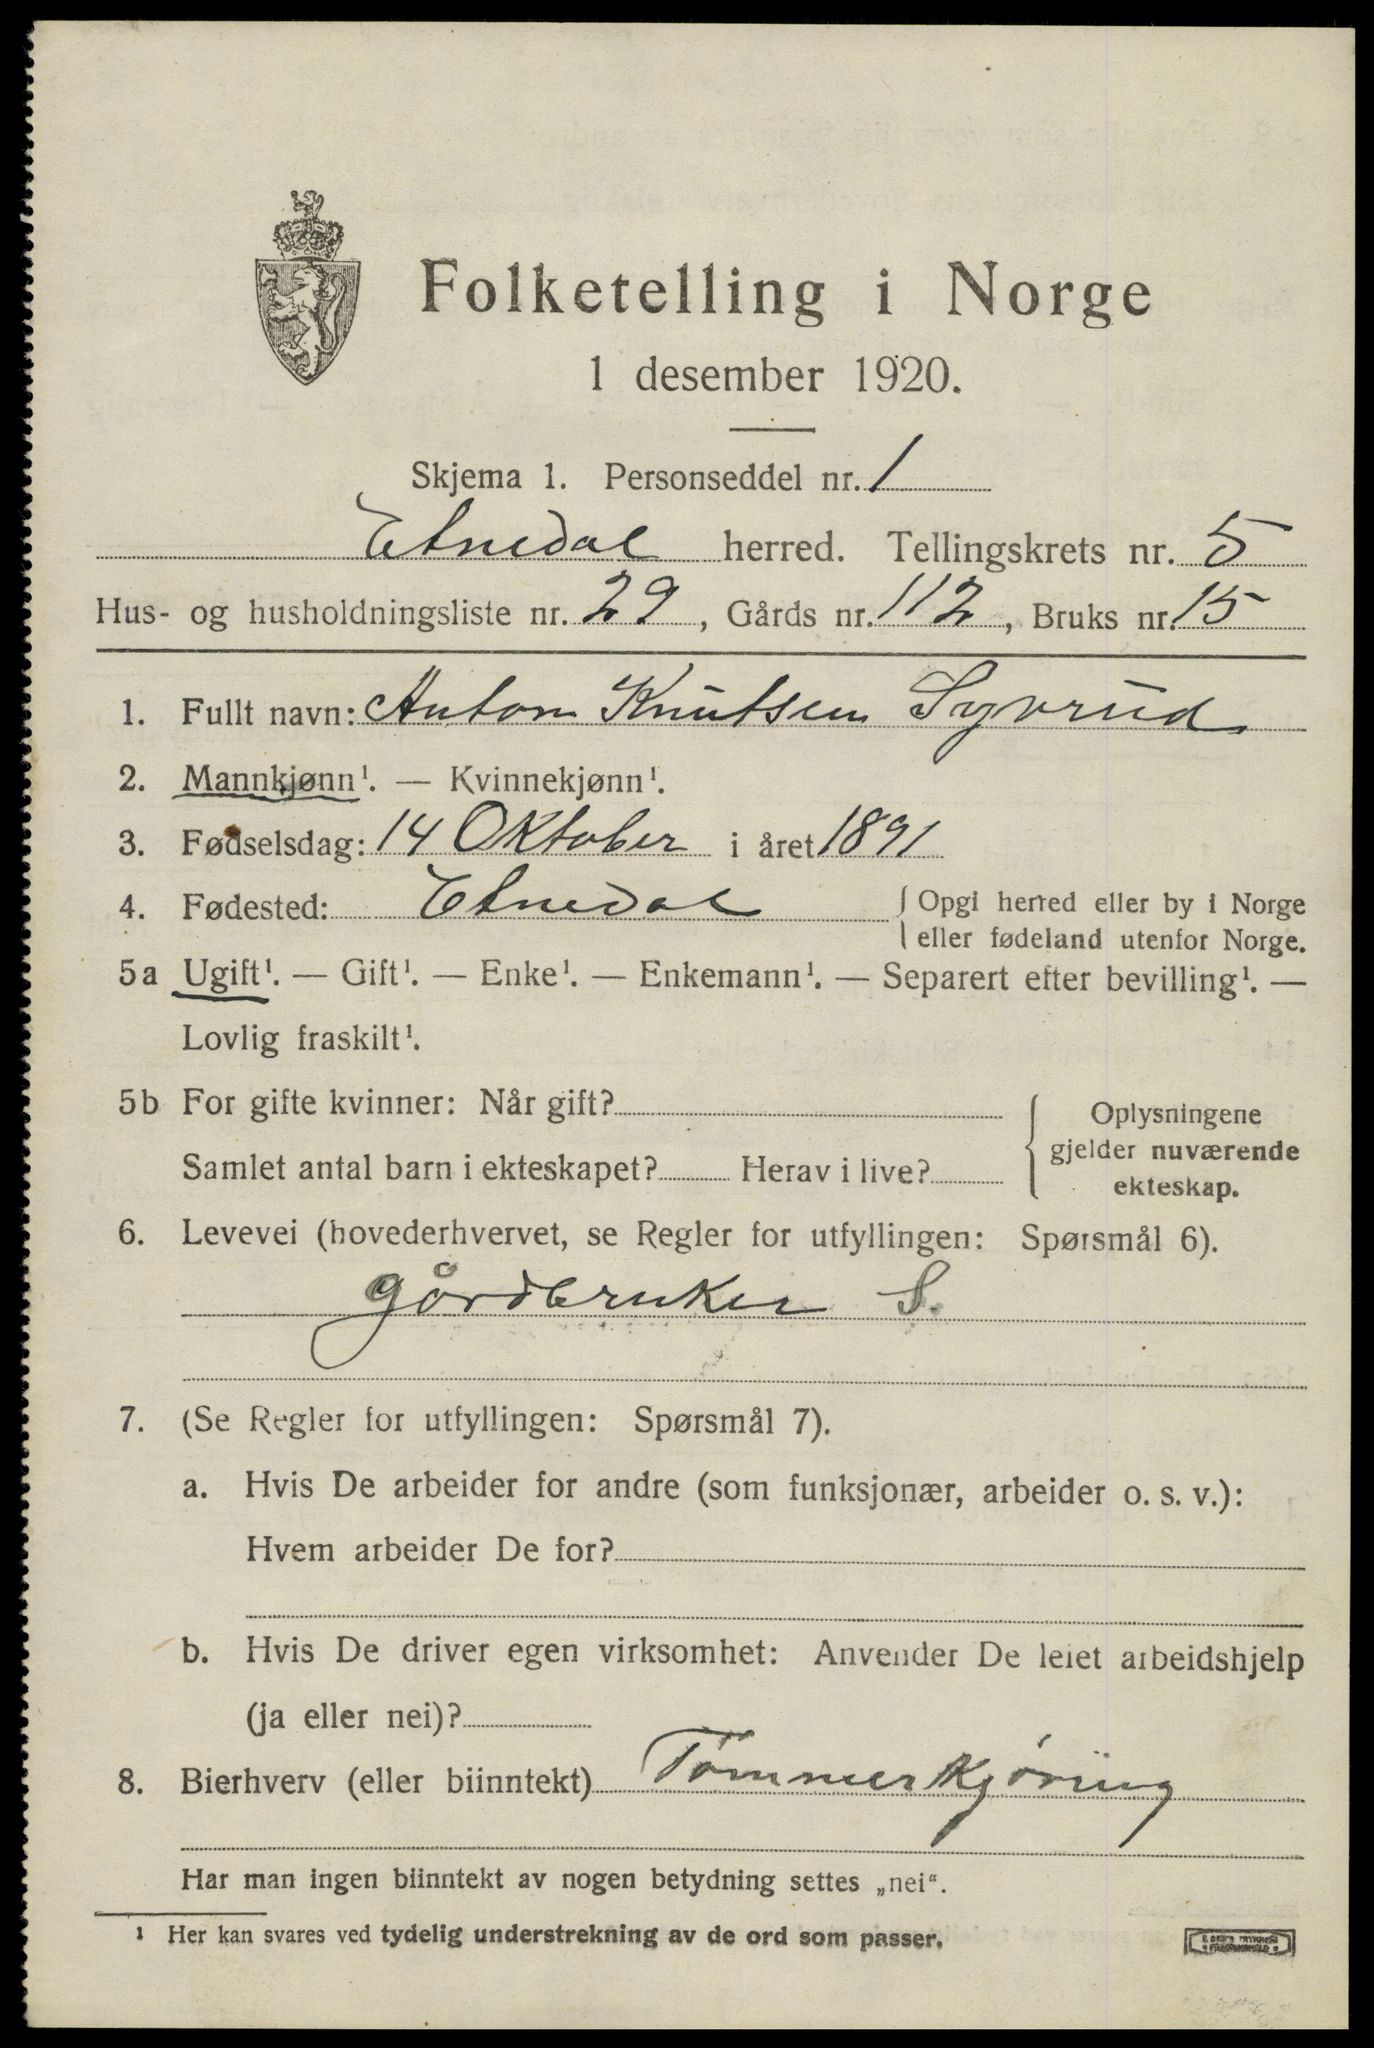 Folketelling i Norge
1 desember 1920.
Skjema 1. Personseddel nr. 1
Etnedal herred. Tellingskrets nr. 5
Hus- og husholdningsliste nr. 29, Gårds nr. 112, Bruks nr. 15
1. Fullt navn: Anton Knutsen Syvrud
2. Mannkjønn¹. — Kvinnekjønn¹.
3. Fødselsdag: 14 Oktober i året 1891
4. Fødested: Etnedal { Opgi herred eller by i Norge
eller fødeland utenfor Norge.
5a Ugift¹. — Gift¹. — Enke¹. — Enkemann¹. — Separert efter bevilling¹. —
Lovlig fraskilt¹.
5b For gifte kvinner: Når gift? { Oplysningene
gjelder nuværende
Samlet antal barn i ekteskapet? Herav i live?
ekteskap.
6. Levevei (hovederhvervet, se Regler for utfyllingen: Spørsmål 6).
gårdbruker S.
7. (Se Regler for utfyllingen: Spørsmål 7).
a. Hvis De arbeider for andre (som funksjonær, arbeider o. s. v.):
Hvem arbeider De for?
b. Hvis De driver egen virksomhet: Anvender De leiet arbeidshjelp
(ja eller nei)?
8. Bierhverv (eller biinntekt) Tømmerkjøring
Har man ingen biinntekt av nogen betydning settes „nei“.
¹ Her kan svares ved tydelig understrekning av de ord som passer.